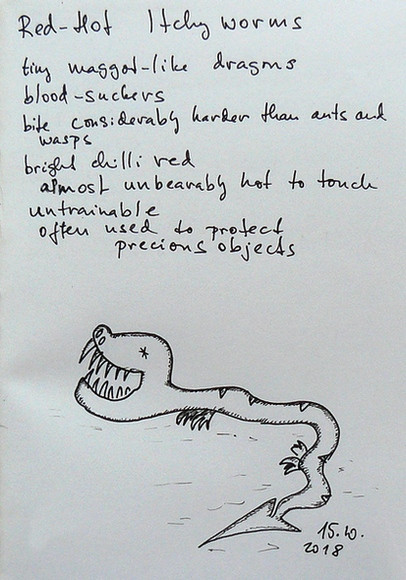 Red-Hot Itchyworms
tiny maggot-like dragons
blood-suckers
bite considerably harder than ants and
wasps
bright chilli red
almost unbearably hot to touch
untrainable
often used to protect
precious objects
15.10.
2018